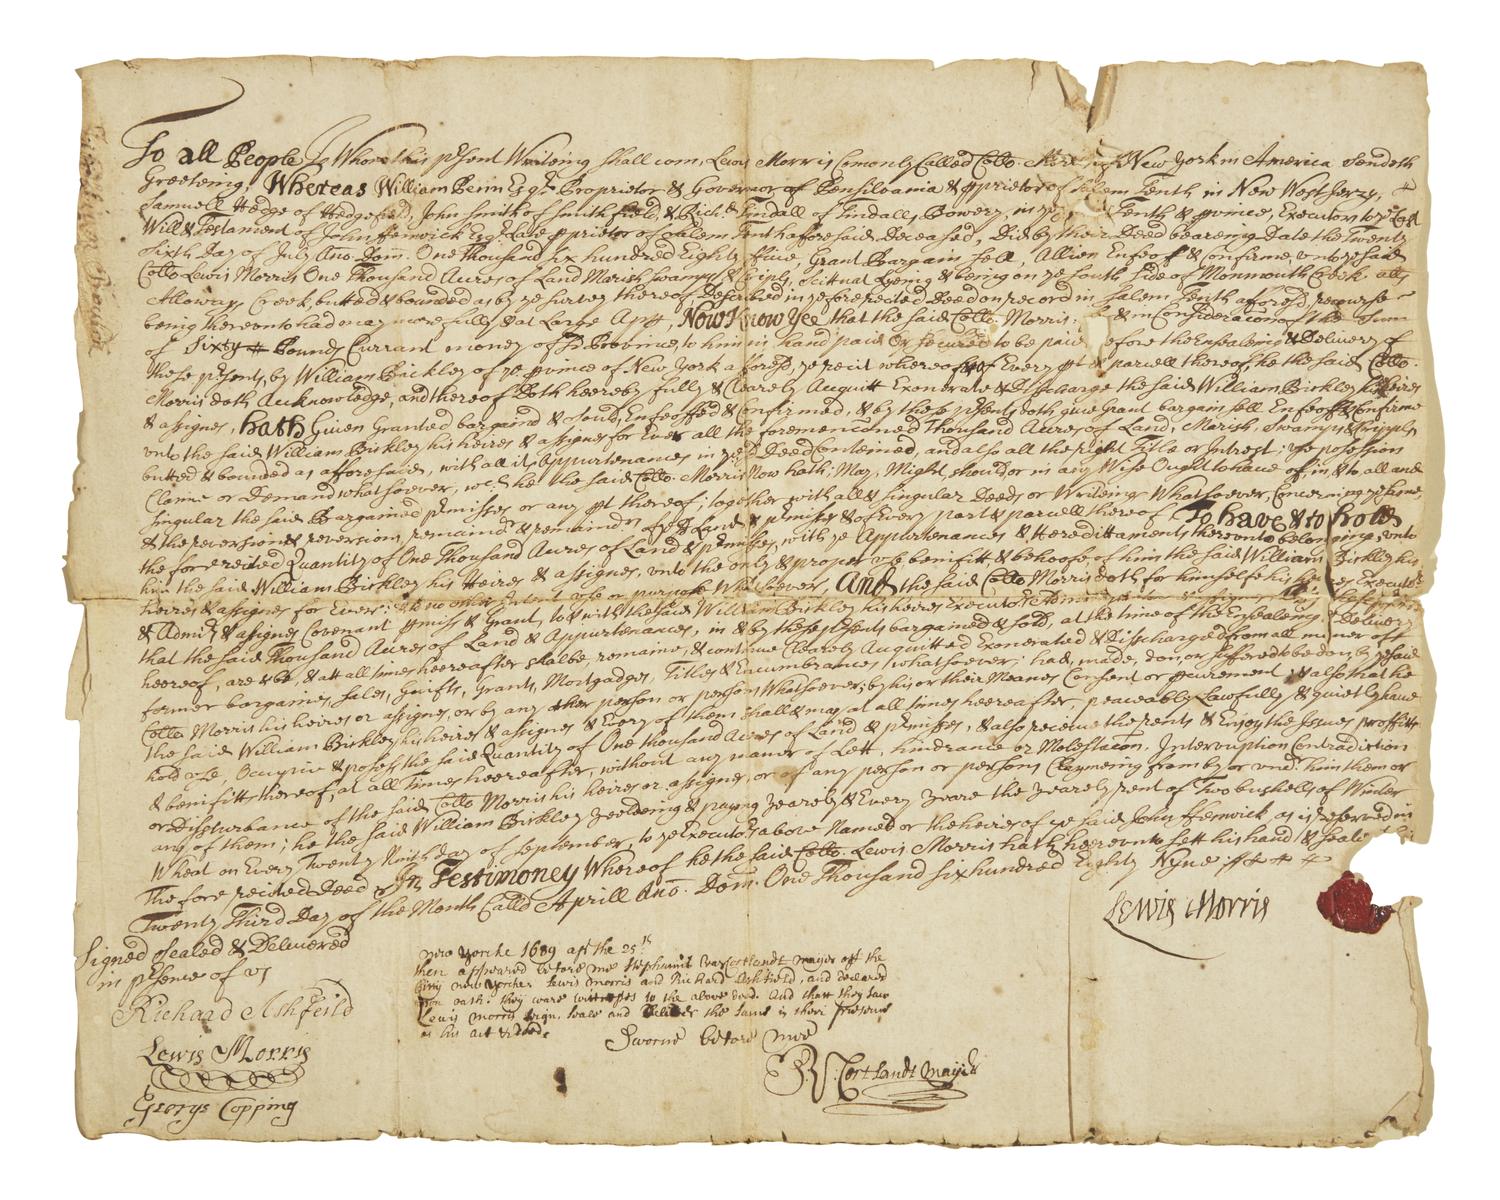 To all People To Whom this psent Writeing shall com, Lewis Morris Comonly Called Collo. Morris of New York in America Sendeth
Greeteing, Whereas William Penn Esqr. Proprietor & Governor of Pensilvania & pprietor of Salem Tenth in New West Jerzy,
Samuell Hedge of Hedgefield, John Smith of Smithfield, & Richd. Tindall of Tindalls Bowery, in ye Tenth & province, Executors to ye Last
Will & Testament of John ffenwick Esqr. Late pprietor of Salem Tenth afforesaid Deceased, Did by their Deed beareing Date the Twenty
Sixth Day of July Ano. Dom. One Thousand six hundred Eighty ffiue, Grant Bargain Sell, Allien Enfeoff & Confirme, vnto ye said
Collo Lewis Morris One Thousand Acres of Land Marish Swamps & Cripls, Scittuat Lyeing & being on ye South Side of Monmouth Creek als
Alloways Creek, butted & bounded as by ye survey thereof, Described in ye forerecited Deed on record in Salem Tenth afforesd, recourse
being therevnto had may more fully & at Large Apr, Now Know Yee that the said Collo. Morris, & in Consideracon of the Sum
of Sixty Pounds Currant money of Province, to him in hand paid Or secured to be paid before the Ensealeing & Delivery of
these psents, by William Bickley of ye province of New York afforesd, ye receit whereof & of Every pt & parcell thereof, he the said Collo.
Morris doth Acknowledge, and thereof Doth heereby fully & Clearly Acquitt Exonerate & Discharge the said William Bickley his heires
& assignes, hath Given Granted bargaind & sould, Enfeoffed & Confirmed, & by these psents doth give Grant bargain sell Enfeoff & Confirme
vnto the said William Bickley his heires & assignes for Ever all the forementioned Thousand Acres of Land, Marish, Swamps & Cripls,
butted & bounded as afforesaid, with all its Appurtenances in ye sd Deed Contained, and also all the right Title or Intrest, vse posession
Claime or Demand whatsoever, wch he the said Collo. Morris Now hath, May, Might, should or in any Wise Ought to haue of, in, & to all and
Singular the said Bargained pmisses or any pt thereof; together with all & singular Deeds or Writeings Whatsoever, Concerning ye same,
& the reversion & reversions, remaindr & remaindrs of ye sd Land & pmisses & of Every part & parcell thereof To have & to hold
the fore recited Quantity of One Thousand Acres of Land & pmisses, with ye Appurtenances & Hereditaments therevnto belonging, vnto
him the said William Bickley his Heires & assignes, vnto the only & proper vse benifitt, & behoofe, of him the said William Bickley his
heires & assignes for Ever: & to no other Intent vse or purpose Whatsoever, And the said Collo Morris doth for himselfe his heires Executors
& Admrs & assignes Covenant pmiss & Grant, to & with the said William Bickley his heires Executors
that the said Thousand Acres of Land & Appurtenances, in & by these psents bargained & sold, at the time of the Ensealeing & Delivery
heereof, are & be, & att all times heereafter shalbe, remaine, & continue Clearly Acquitted Exonerated & Discharged from all maner off
former bargaines, sales, Guifts, Grants, Mortgadges, Titles & Encumbrances whatsoever; had, made, don, or suffered to be don, by ye said
Collo Morris his heires or assignes, or by any other person or persons Whatsoever; by his or their Meanes Consent or pcurement & also that he
the said William Bickley his heires & assignes & Every of them shall & may at all times heereafter, peaceably Lawfully & quietly haue
hold vse, Occupie & posess the said Quantity of One thousand Acres of Land & pmisses, & also receiue the rents & Enjoy the Issues proffitts
& benifitts thereof, at all Times heereafter, without any maner of Lett, hindrance or Molestacon, Interruption Contradiction
or Disturbance of the said Collo Morris his heires or assignes, or of any person or persons Claymeing from by or vndr: him them or
any of them; he the said William Bickley Yeelding & paying Yearely & Every Yeare the Yearely rent of Two bushells of Winter
Wheat on Every Twenty Ninth day of September, to ye Executors above Named or the heires of ye said John ffenwick, as is reserved in
The fore recited Deed, In Testimoney Whereof he the said Collo. Lewis Morris hath heerevnto sett his hand & seale
Twenty Third Day of the Month Calld Aprill Ano. Dom. One Thousand six hundred Eighty Nyne
Lewis Morris
Signed Sealed & Delivered
in psence of vs
Richard Ashfeild
Lewis Morris
George Copping
new yorke 1689 the 25th
then appeared before mee Stephanus van Cortlandt mayer off the
Citty new yorcke Lewis Morris and Richard Ashfield, and declared
vpon oath they ware wittnesses to the above deed. And that they saw
Lewis morris sign. seale and deliver the same in their presens
as his act & deed.
Sworne before mee
S. V. Cortlandt mayer